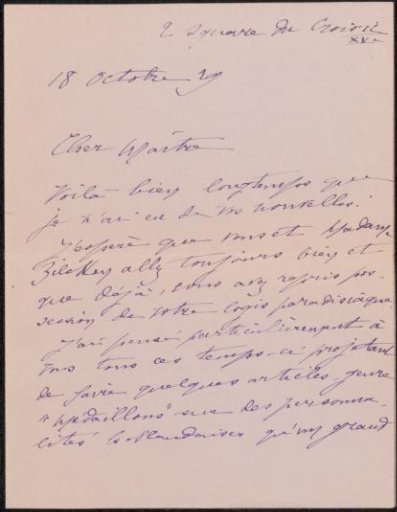 2 square du Croisic
XVe
18 Octobre 29
Cher Maître
Voilà bien longtemps que
je n'ai eu de vos nouvelles.
J'espère que vous et Madame
Zilcken allez toujours bien et
que déjà, vous avez repris pos-
session de votre logis paradisiaque
J'ai pensé particulièrement à
vous tous ces temps-ci projetant
de faire quelques articles, genre
"Médaillons" sur des personna-
lités hollandaises qu'un grand